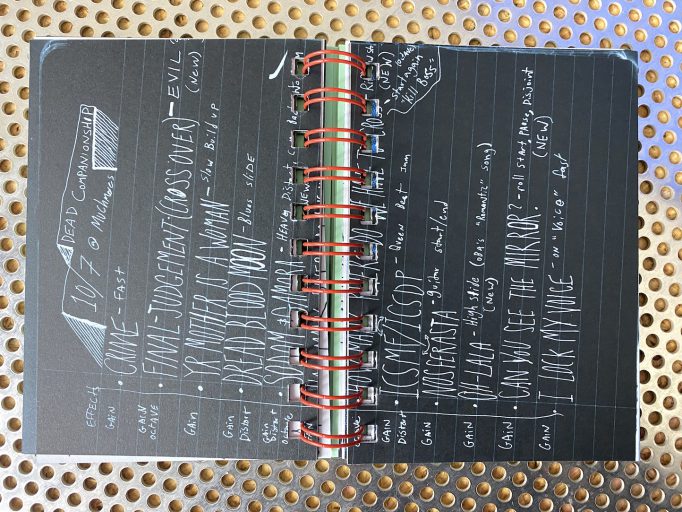 DEAD COMPANIONSHIP
10/7 @ Muchmores
EFFECTS
GAIN • CRIME - Fast
GAIN OCTAVE • FINAL-JUDGEMENT (CROSSOVER) - EVIL (NEW)
GAIN • YR MOTHER IS A WOMAN - Slow Build up
GAIN DISTORT • DREAD BLOOD MOON - Blues slide
GAIN DISTORT OCTAVE • SODOM HEAVY DISTORT
(NEW)
THE CROSS (NEW)
start again
"Kill
GAIN DISTORT • ICSSMF/ICSDP - Queen Beat Jam
GAIN • NOSFERASTA - guitar start/end
GAIN • OH-LALA - High slide (OPA's "Romantiz" song) (New)
GAIN • CAN YOU SEE THE MIRROR? - roll start, PAUSE, Disjoint (NEW)
GAIN • I LOCK MY VOICE - ON "Voice" fast